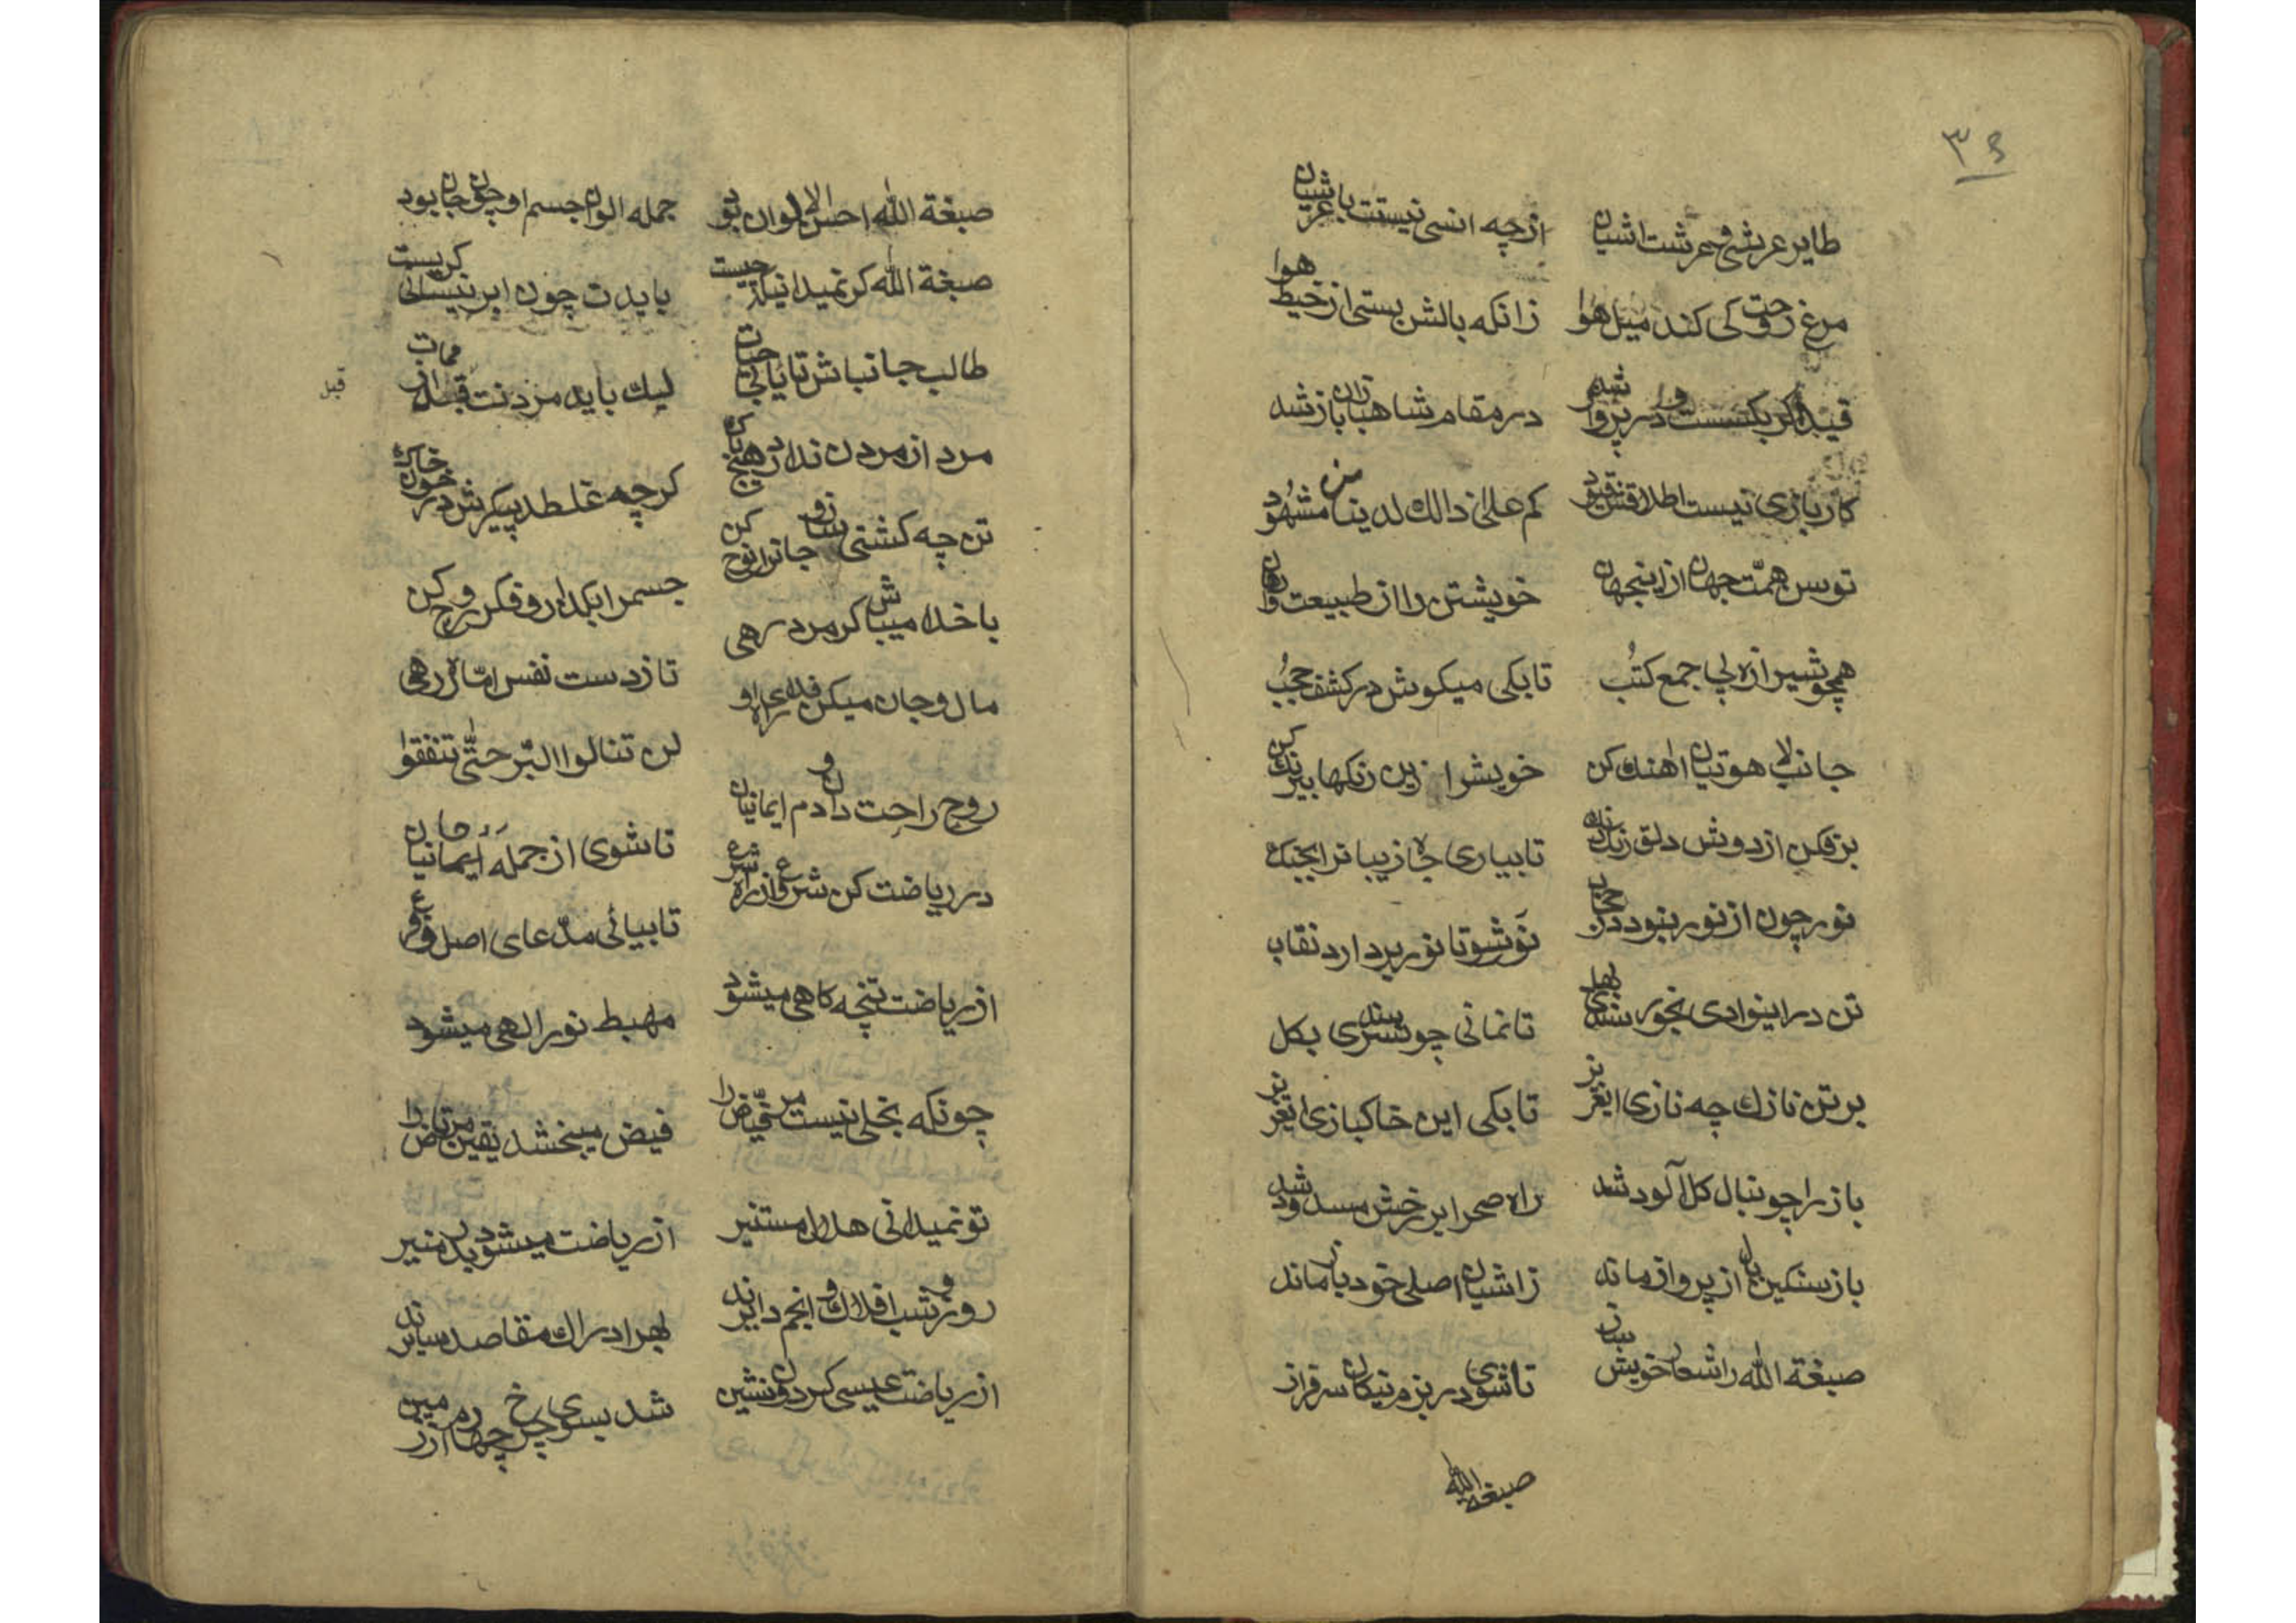 ۳۶
طایر عرشی و عرشت اشیان ازچه انسی نیستت با عرشیان
مرغ روحت کی کند میل هوا زانکه بالش بستی از خیط هوا
قید او کر بکسست و در پرواز شد در مقام شاهبازان باز شد
کار بازی نیست اطلاقش قیود کم علی ذالك لدینا من شهود
توسن همّت جهان از اینجهان خویشتن را از طبیعت وارهان
همچو شیرازه پی جمع کتُب تابکی میکوش در کشف حجُب
جانب لاهوتیان اهنك کن خویشرا زین رنکها بیرنك کن
برفکن از دوش دلق رنك رنك تابیاری جان زیبا را بچنك
نور چون از نور نبود در حجاب نوَر شو تا نور بردارد نقاب
تن در اینوادی بخور بندی بهل تانمانی چو خری بکل
بر تن نازك چه نازی ایغزیز تابکی این خاکبازی ایعزیز
باز را چو نبال کل آلود شد راه صحرا بر رخش مسدود شد
باز سنکین بال از پرواز ماند زاشیان اصلی خود باز ماند
صبغة اللّٰه را شعار خویش ساز تاشوی در بزم نیکان سرفراز
صبغة اللّٰه
صبغة اللّٰه احسن الالوان بود جمله الوان جسم او چون جان بود
صبغة اللّٰه کر نمیدانی که چیست بایدت چون ابر نیسانی کریست
طالب جانباش تا یابی حیات لیك باید مردنت قبل از ممات
قبل
مرد از مردن ندارد هیچ باك کرچه غلطد پیکرش در خون و خاك
تن چه کشتی ساز و جانرا نوح کن جسمرا بکدار و فکر روح کن
با خدا میباش کر مرد رهی تا ز دست نفس امّاره رهی
مال و جان میکن فدای راه او لن تنالوا البّر حتّٰی تنفقوا
روح راحت دان و دم ایمانیان تاشوی از جملهٔ ایمانیان
در ریاضت کن شروع از راه شرع تابیائی مدّعای اصل و فرع
از ریاضت تنچه کاهی میشود مهبط نور الهی میشود
چونکه بخلی نیست مر فیّاض را فیض میبخشد یقین مرتاض را
تو نمیدانی هلال مستنیر از ریاضت میشود بدر منیر
روز و شب افلاك و انجم دایرند بهر ادراك مقاصد سایرند
از ریاضت عیسی کردون نشین شد بسوی چرخ چهارم از زمین